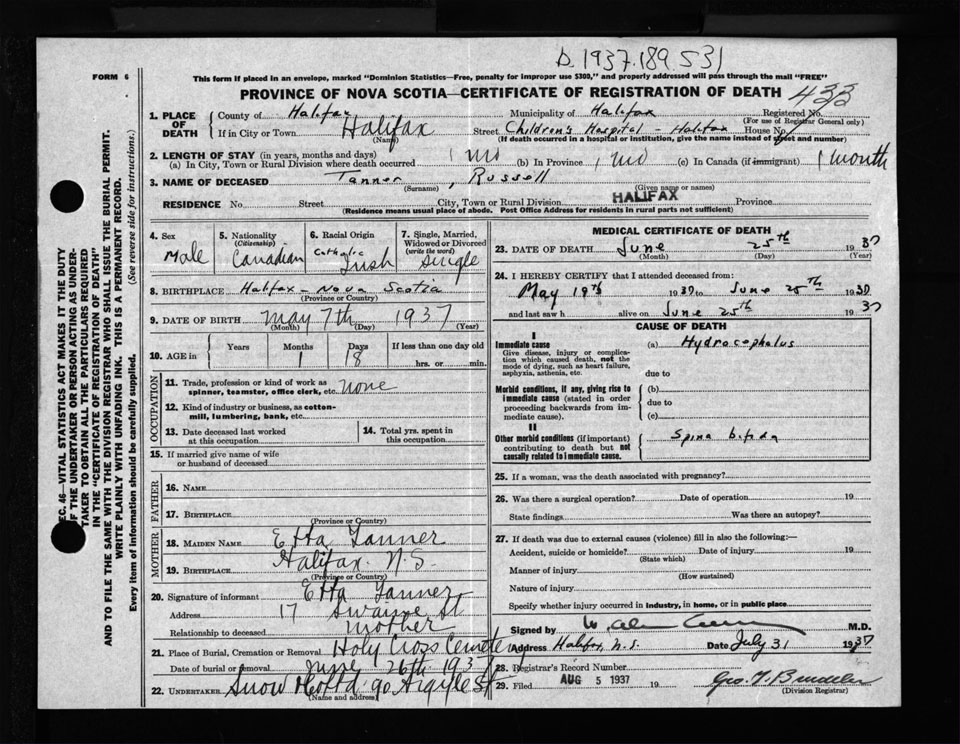 D.1937.189531
FORM 6
This form if placed in an envelope, marked "Dominion Statistics—Free, penalty for improper use $300," and properly addressed will pass through the mail "FREE"
PROVINCE OF NOVA SCOTIA—CERTIFICATE OF REGISTRATION OF DEATH 433
1. PLACE OF DEATH County of Halifax Municipality of Halifax Registered No.
(For use of Registrar General only)
If in City or Town Halifax Street Children's Hospital - Halifax House No.
(Name) (If death occurred in a hospital or institution, give the name instead of street and number)
2. LENGTH OF STAY (in years, months and days)
(a) In City, Town or Rural Division where death occurred 1 mo (b) In Province 1 mo (c) In Canada (if immigrant) 1 month
3. NAME OF DECEASED Tanner, Russell
(Surname) (Given name or names)
RESIDENCE No. Street City, Town or Rural Division HALIFAX Province
(Residence means usual place of abode. Post Office Address for residents in rural parts not sufficient)
4. Sex Male
5. Nationality (Citizenship) Canadian
6. Racial Origin Catholic Irish
7. Single, Married, Widowed or Divorced (write the word) Single
8. BIRTHPLACE Halifax - Nova Scotia
(Province or Country)
9. DATE OF BIRTH May 7th 1937
(Month) (Day) (Year)
10. AGE in Years Months 1 Days 18 If less than one day old hrs. or min.
OCCUPATION
11. Trade, profession or kind of work as spinner, teamster, office clerk, etc. none
12. Kind of industry or business, as cotton-mill, lumbering, bank, etc.
13. Date deceased last worked at this occupation
14. Total yrs. spent in this occupation
15. If married give name of wife or husband of deceased
FATHER
16. NAME
17. BIRTHPLACE
(Province or Country)
MOTHER
18. MAIDEN NAME Etta Tanner
19. BIRTHPLACE Halifax N.S.
(Province or Country)
20. Signature of informant Etta Tanner
Address 17 St
Relationship to deceased mother
21. Place of Burial, Cremation or Removal Holy Cross Cemetery
Date of burial or removal June 26th 1937
22. UNDERTAKER Snow & Co Ltd 90 Argyle St
(Name and address)
MEDICAL CERTIFICATE OF DEATH
23. DATE OF DEATH June 25th 1937
(Month) (Day) (Year)
24. I HEREBY CERTIFY that I attended deceased from:
May 19th 1937 to June 25th 1937
and last saw h alive on June 25th 1937
CAUSE OF DEATH
I
Immediate cause (a) Hydrocephalus
Give disease, injury or complication which caused death, not the mode of dying, such as heart failure, asphyxia, asthenia, etc.
due to
Morbid conditions, if any, giving rise to immediate cause (stated in order proceeding backwards from immediate cause). (b)
due to
(c)
II
Other morbid conditions (if important) contributing to death but not causally related to immediate cause. Spina bifida
25. If a woman, was the death associated with pregnancy?
26. Was there a surgical operation? Date of operation 19
State findings Was there an autopsy?
27. If death was due to external causes (violence) fill in also the following:—
Accident, suicide or homicide? Date of injury 19
(State which)
Manner of injury
(How sustained)
Nature of injury
Specify whether injury occurred in industry, in home, or in public place
Signed by M.D.
Address Halifax, N.S. Date July 31 1937
28. Registrar's Record Number
29. Filed AUG 5 1937 19 Geo. T.
(Division Registrar)
SEC. 46—VITAL STATISTICS ACT MAKES IT THE DUTY
OF THE UNDERTAKER OR PERSON ACTING AS UNDERTAKER TO OBTAIN ALL THE PARTICULARS REQUIRED
IN THE "CERTIFICATE OF REGISTRATION OF DEATH"
AND TO FILE THE SAME WITH THE DIVISION REGISTRAR WHO SHALL ISSUE THE BURIAL PERMIT.
WRITE PLAINLY WITH UNFADING INK. THIS IS A PERMANENT RECORD.
Every item of information should be carefully supplied. (See reverse side for instructions.)